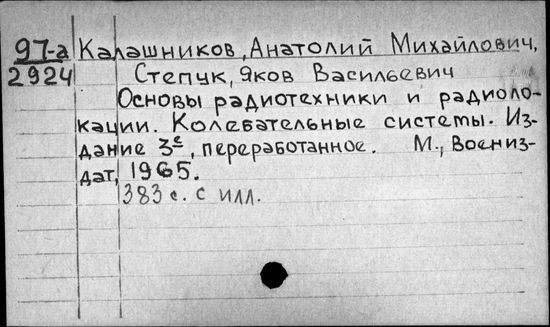 97-а Калашников, Анатолий Михайлович,
2924 Степук, Яков Васильевич
Основы радиотехники и радиоло-
кации. Колебательные системы. Из-
дание 3е, переработанное. М., Воениз-
дат, 1965.
383 с. с илл.